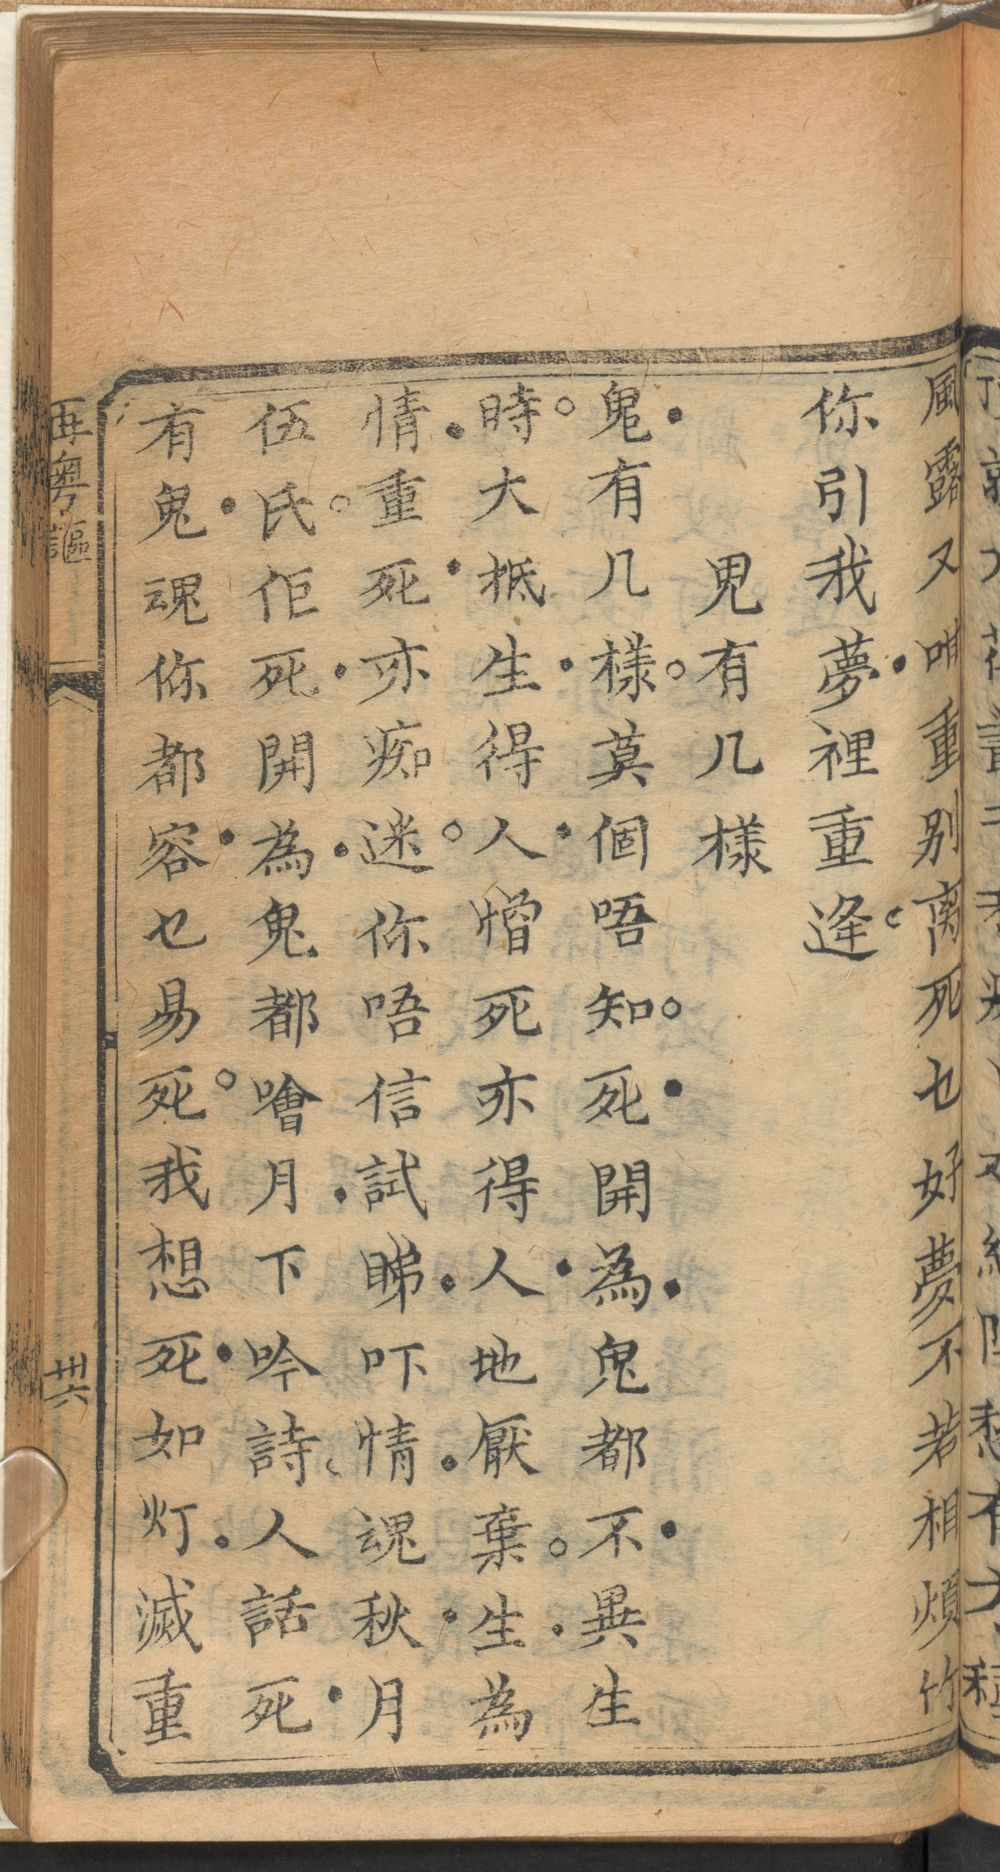 風露又咁重别离死也好夢不若相煩竹
你引我夢裡重逢
鬼有几樣
鬼有几樣莫個唔知死開為鬼都不異生
時大抵生得人憎死亦得人地厭棄生為
情重死亦痴迷你唔信試睇吓情魂秋月
伍氏佢死開為鬼都噲月下吟詩人話死
有鬼魂你都容乜易死我想死如灯滅重
再粵謳
卅六